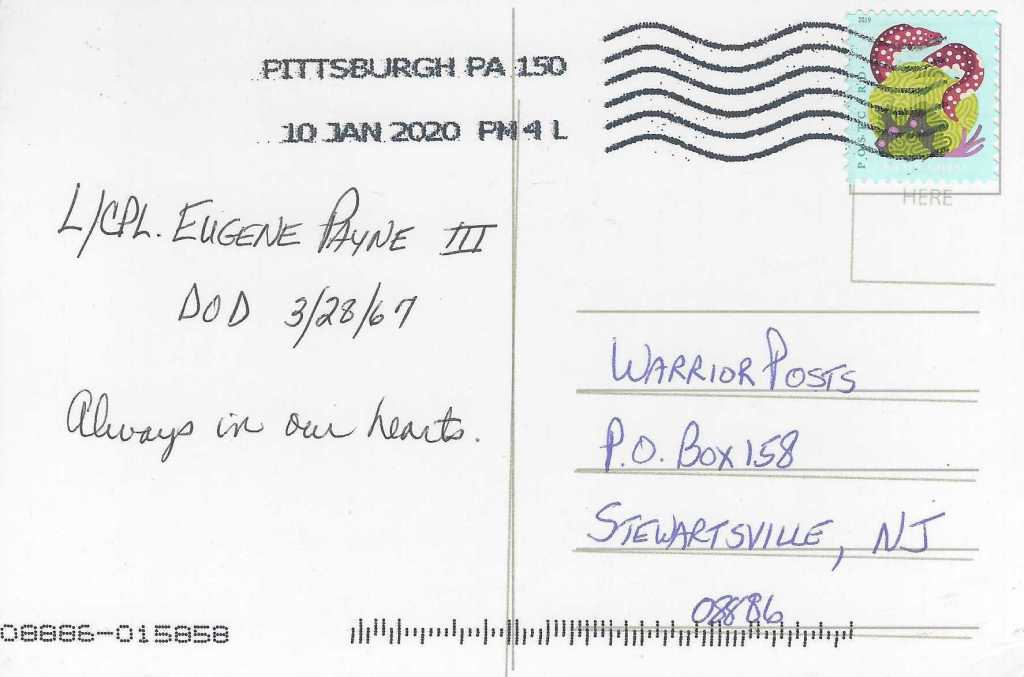 PITTSBURGH PA 150
10 JAN 2020 PM 4 L
2019
POSTCARD
HERE
L/CPL. EUGENE PAYNE III
DOD 3/28/67
Always in our hearts.
WARRIOR POSTS
P.O. BOX 158
STEWARTSVILLE, NJ
08886
08886-015858